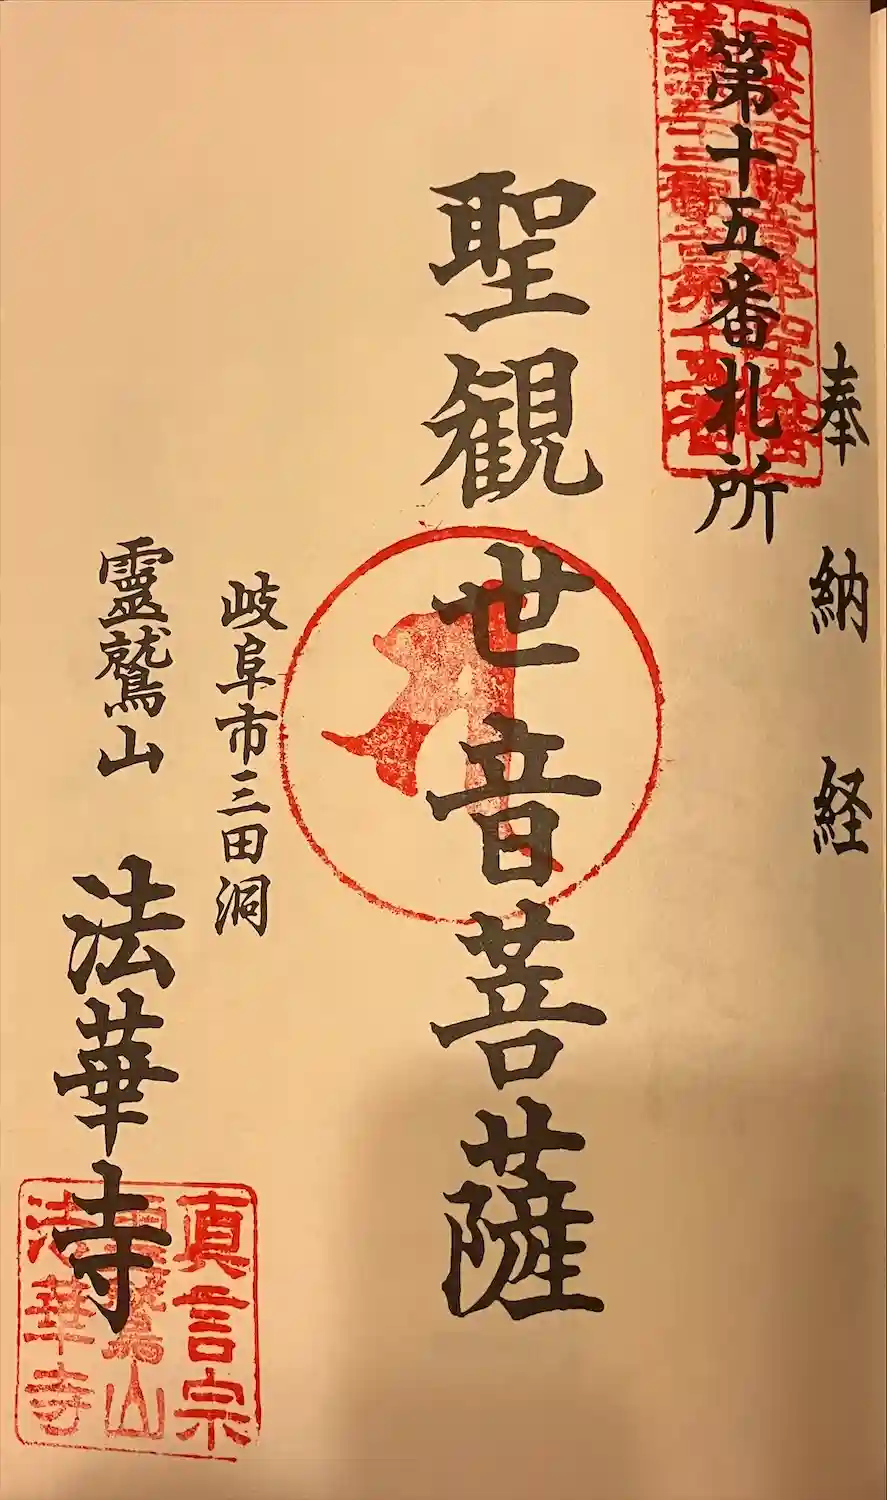 奉納経
第十五番札所
聖観世音菩薩
岐阜市三田洞
靈鷲山 法華寺
真言宗
靈鷲山
法華寺